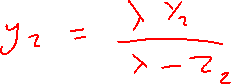 y₂ = λ Y₂ / (λ − Z₂)